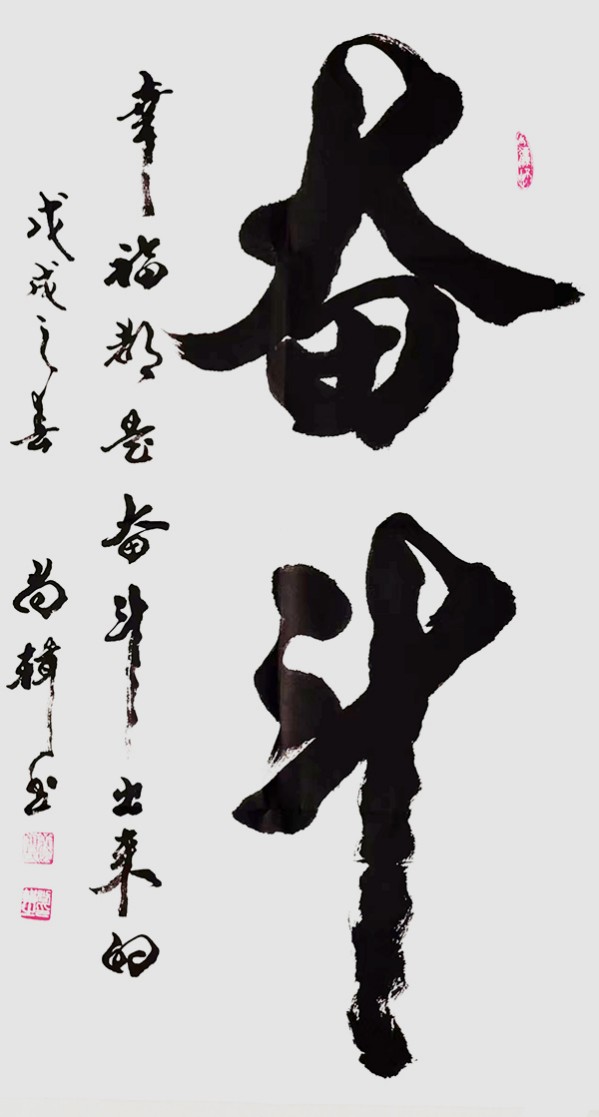 奋斗
幸福都是奋斗出来的
戊戌之春 尚耕书